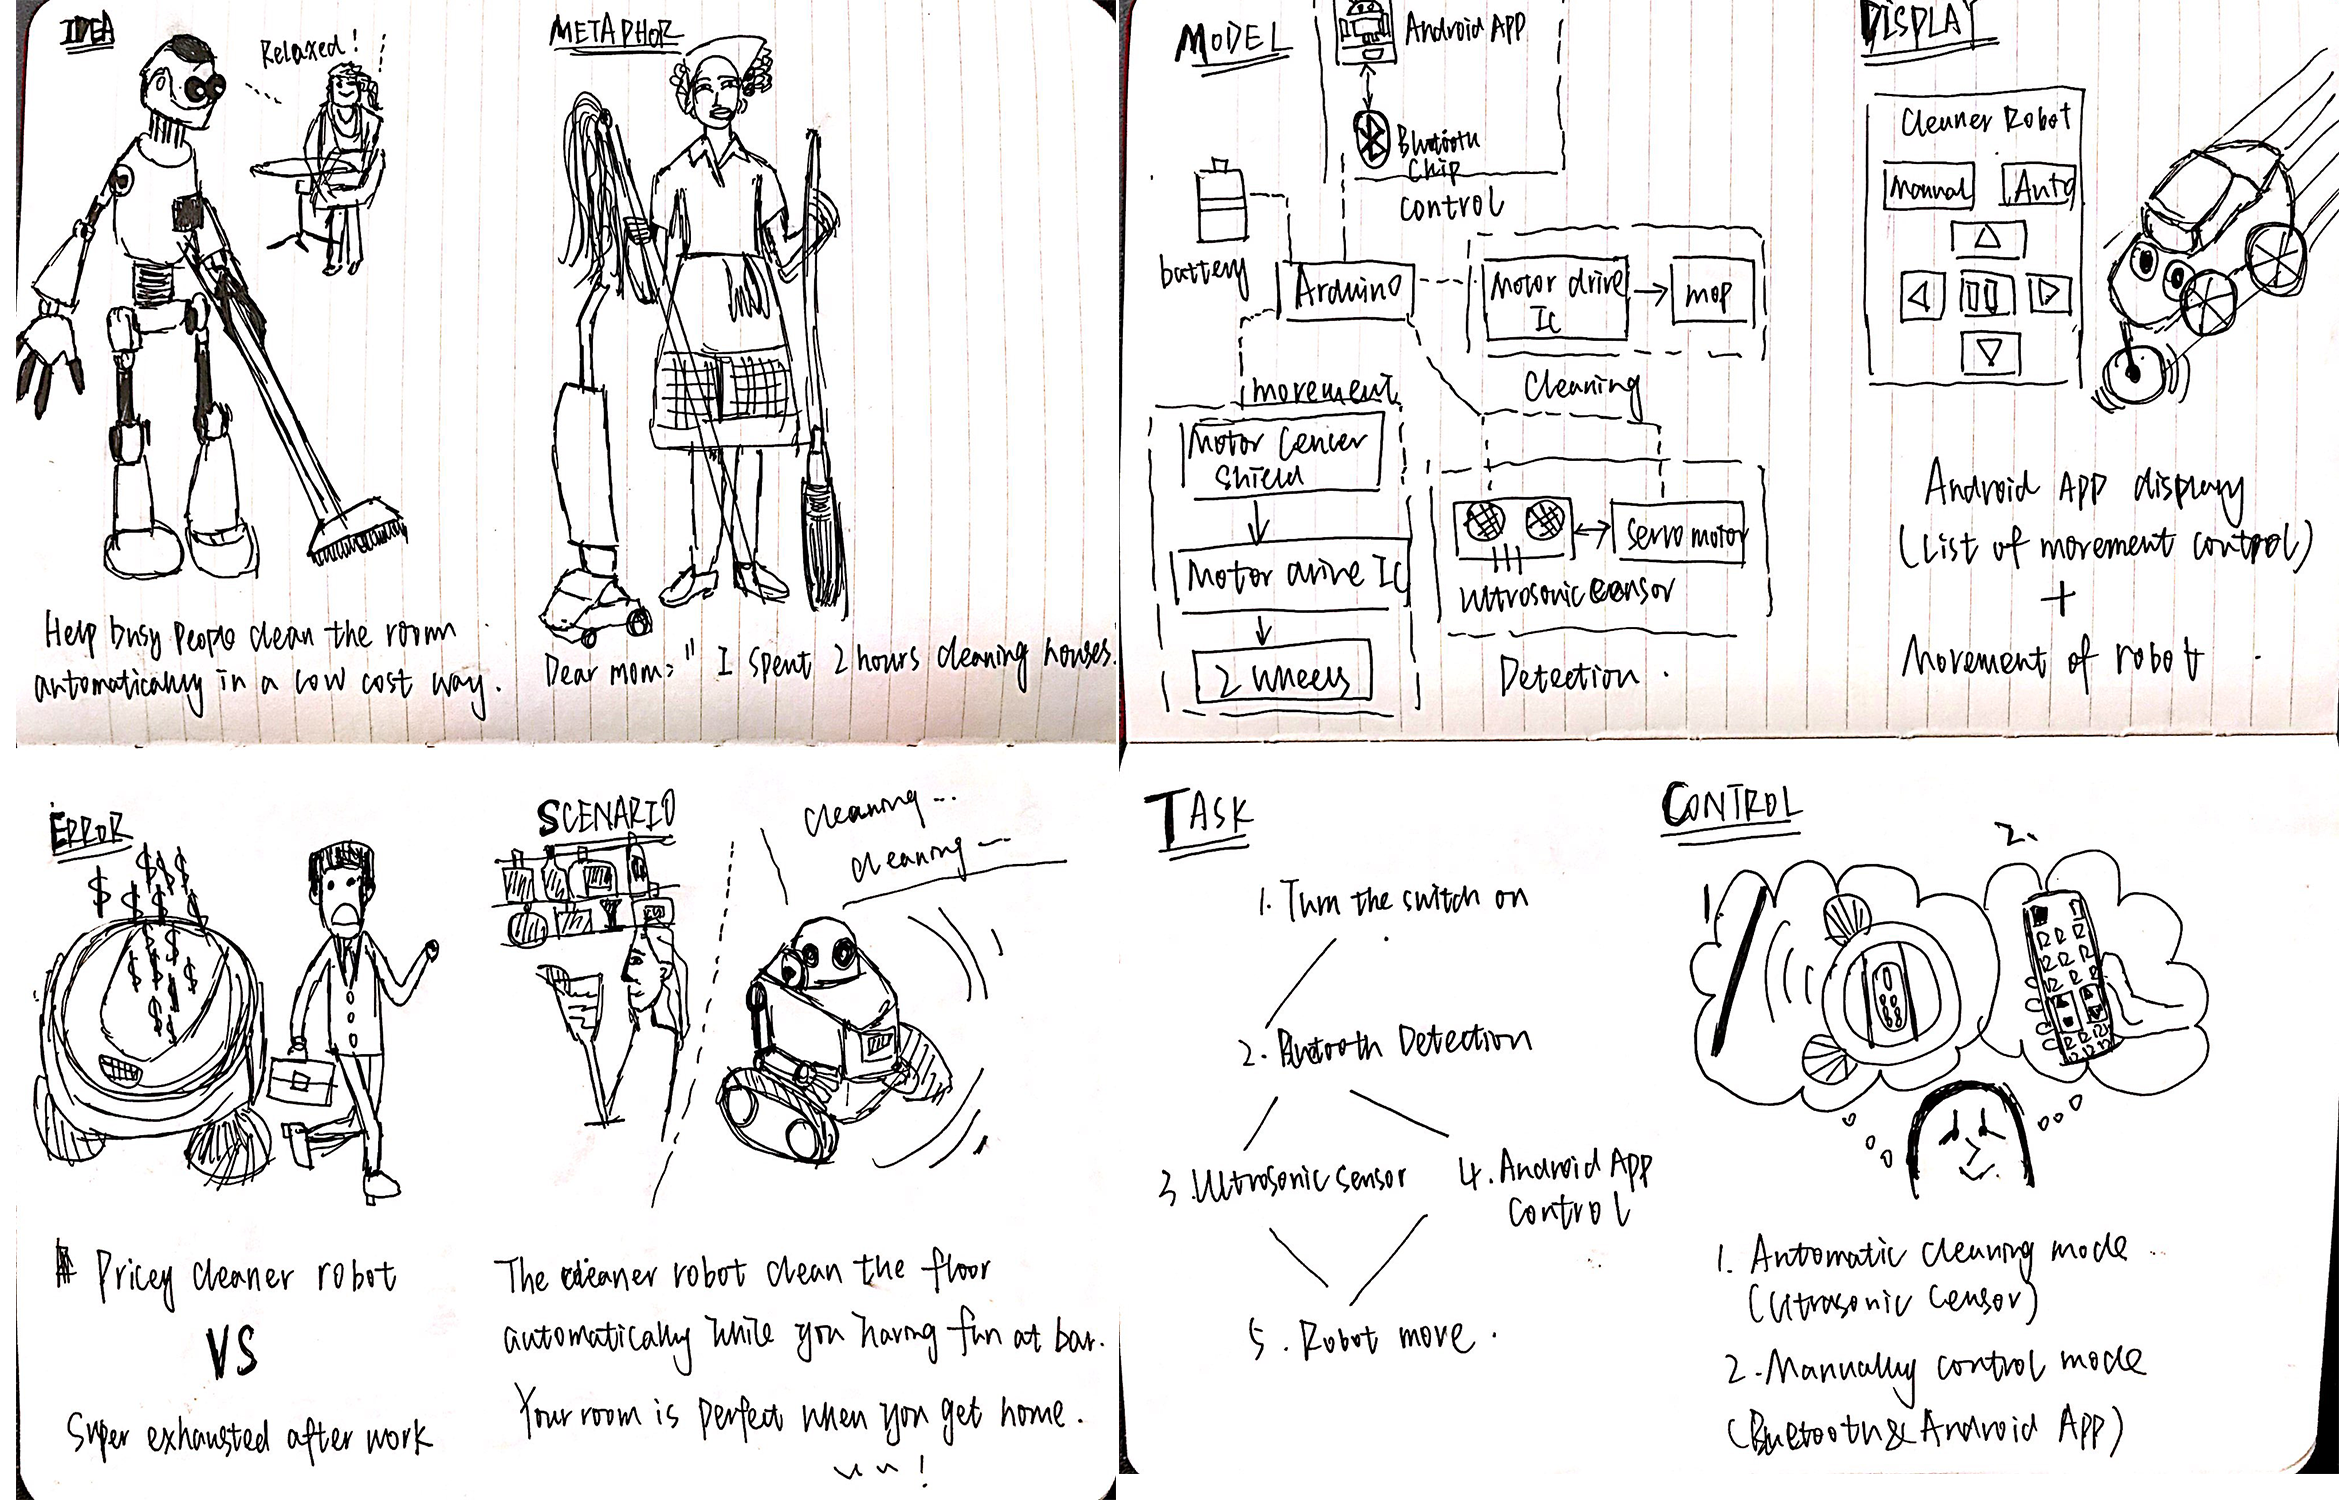 IDEA
Relaxed!
Help busy people clean the room
automatically in a low cost way.
METAPHOR
Dear mom: " I spent 2 hours cleaning houses.
MODEL
Android APP
Blutooth
Chip
control
battery
Arduino
Motor drive
Ic
mop
Cleaning
movement
Motor Cencer
Shield
Motor drive Ic
2 wheels
Servo motor
Ultrosonic censor
Detection.
DISPLAY
Cleaner Robot
Manual
Auto
Android APP display
(List of movement control)
+
Movement of robot
ERROR
$ $ $ $ $ $ $ $ $ $ $ $ $ $
Pricey cleaner robot
VS
Super exhausted after work
SCENARIO
cleaning...
cleaning...
The cleaner robot clean the floor
automatically while you having fun at bar.
Your room is perfect when you get home.
!
TASK
1. Turn the switch on
2. Blutooth Detection
3 Ultrosonic sensor
4. Android App
control
5. Robot move.
CONTROL
1
2.
1. Automatic cleaning mode
(Ultrasonic Censor)
2. Manually control mode
(Bluetooth & Android App)